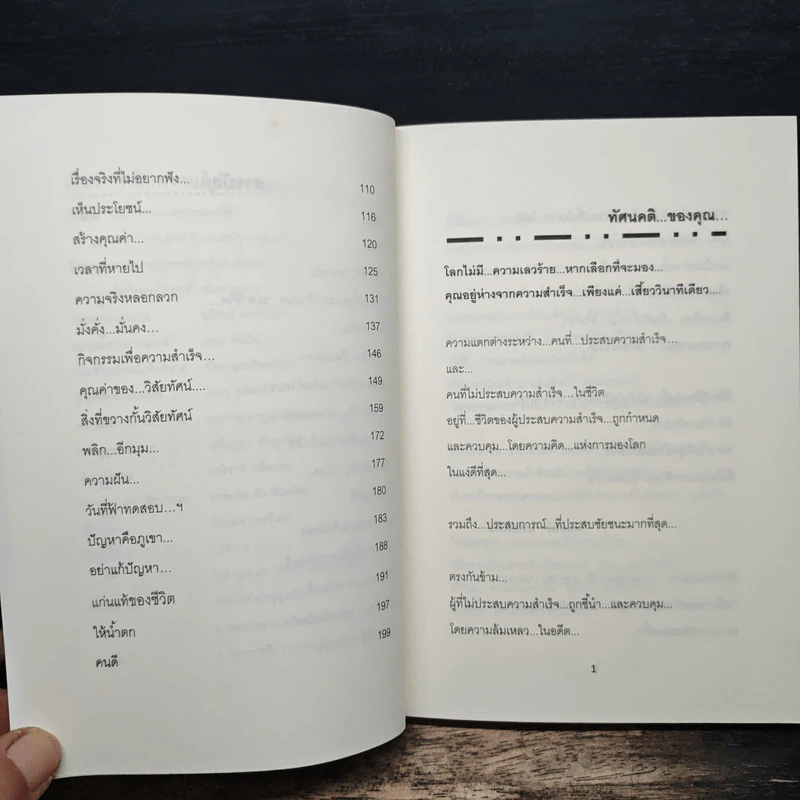 เรื่องจริงที่ไม่อยากฟัง... 110
เห็นประโยชน์... 116
สร้างคุณค่า... 120
เวลาที่หายไป 125
ความจริงหลอกลวก 131
มั่งคั่ง...มั่นคง... 137
กิจกรรมเพื่อความสำเร็จ... 146
คุณค่าของ...วิสัยทัศน์.... 149
สิ่งที่ขวางกั้นวิสัยทัศน์ 159
พลิก...อีกมุม... 172
ความฝัน... 177
วันที่ฟ้าทดสอบ...ฯ 180
ปัญหาคือภูเขา... 183
อย่าแก้ปัญหา... 188
แก่นแท้ของชีวิต 191
ให้น้ำตก 197
คนดี 199
ทัศนคติ...ของคุณ...
โลกไม่มี...ความเลวร้าย...หากเลือกที่จะมอง...
คุณอยู่ห่างจากความสำเร็จ...เพียงแค่...เสี้ยววินาทีเดียว....
ความแตกต่างระหว่าง...คนที่...ประสบความสำเร็จ...
และ...
คนที่ไม่ประสบความสำเร็จ...ในชีวิต
อยู่ที่...ชีวิตของผู้ประสบความสำเร็จ...ถูกกำหนด
และควบคุม...โดยความคิด...แห่งการมองโลก
ในแง่ดีที่สุด...
รวมถึง...ประสบการณ์...ที่ประสบชัยชนะมากที่สุด...
ตรงกันข้าม...
ผู้ที่ไม่ประสบความสำเร็จ...ถูกชี้นำ...และควบคุม...
โดยความล้มเหลว...ในอดีต...
1